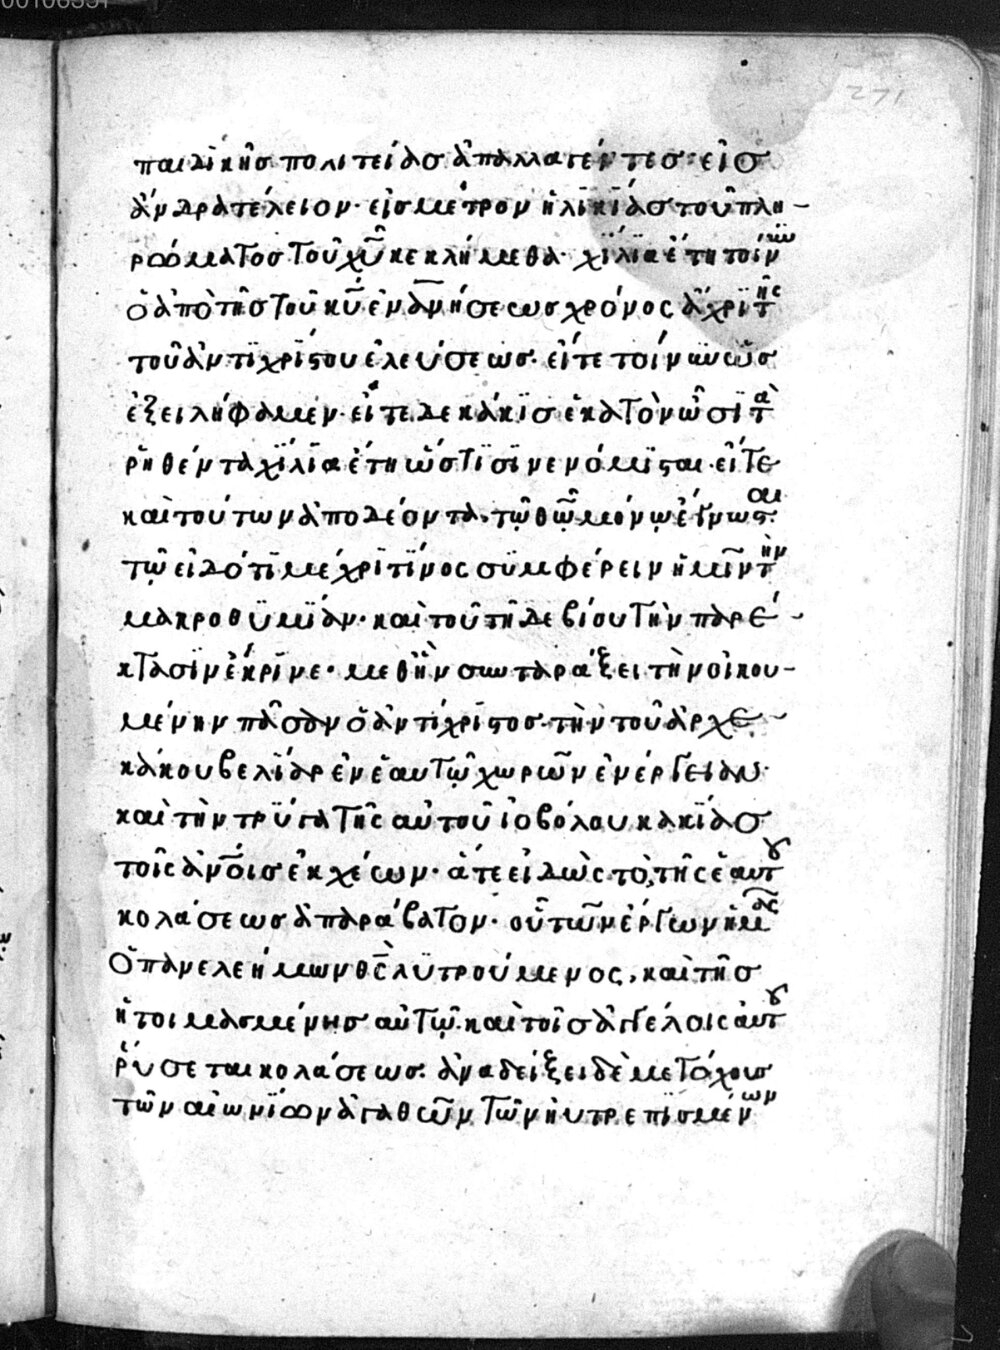 271
παιδικῆσ πολιτείασ ἀπαλλαγέντεσ· εἰσ
ἄνδρα τέλειον· εἰσ μέτρον ἡλϊκϊάσ τοῦ πλη-
ρώματοσ τοῦ χῦ κεκλήμεθα· χϊλϊα ἔτη τοίνῡ
ὁ ἀπὸ τῆσ τοῦ κῡ ἐναν̅ήσεωσ χρόνος ἄχρϊ τῆς
τοῦ ἀντϊχρϊστου ἐλεύσεωσ· εἴτε τοίνυν οὕτωσ
ἐξειλήφαμεν· εἴτε δεκάκϊσ ἑκατὸν ὥσϊ τὰ
ῥηθέντα χϊλϊα ἔτη ὥστϊσϊν ἐνόμϊσται· εἴτε
καὶ τούτων ἀποδέοντα, τῷ θῶ μόνῳ ἔγνωσται·
τῷ εἰδότϊ μέχρϊ τϊνος σϋμφέρειν ἡμῖν τὴν
μακροθϋμϊάν· καὶ τοῦ τῆδε βίου τὴν παρέ-
κτασϊν ἔκρϊνε· μεθ ἣν συνταράξει τὴν οἰκου-
μένην πᾶσαν ὁ ἀντϊχρϊστοσ· τὴν τοῦ ἀρχε-
κάκου βελϊάρ ἐν ἑαυτῷ χωρῶν ἐνέργειαν·
καὶ τὴν τρϋγα τῆς αὐτοῦ ἰοβόλου κακϊάσ
τοῖς ἀν̅οισ ἐκχέων· ἅτε εἰδὼς τὸ τῆς ἑαυτοῦ
κολάσεωσ ἀπαράβατον· οὗ τῶν ἔργων ἡμᾶς
ὁ πανελεήμων θς̅ λϋτρούμενος, καὶ τῆσ
ἡτοιμασμένησ αὐτῷ· καὶ τοῖσ ἀγγέλοις αὐτοῦ
ῥύσεται κολάσεωσ· ἀναδείξει δὲ μετόχουσ
τῶν αἰωνϊων ἀγαθῶν τῶν ηὐτρεπϊσμένων